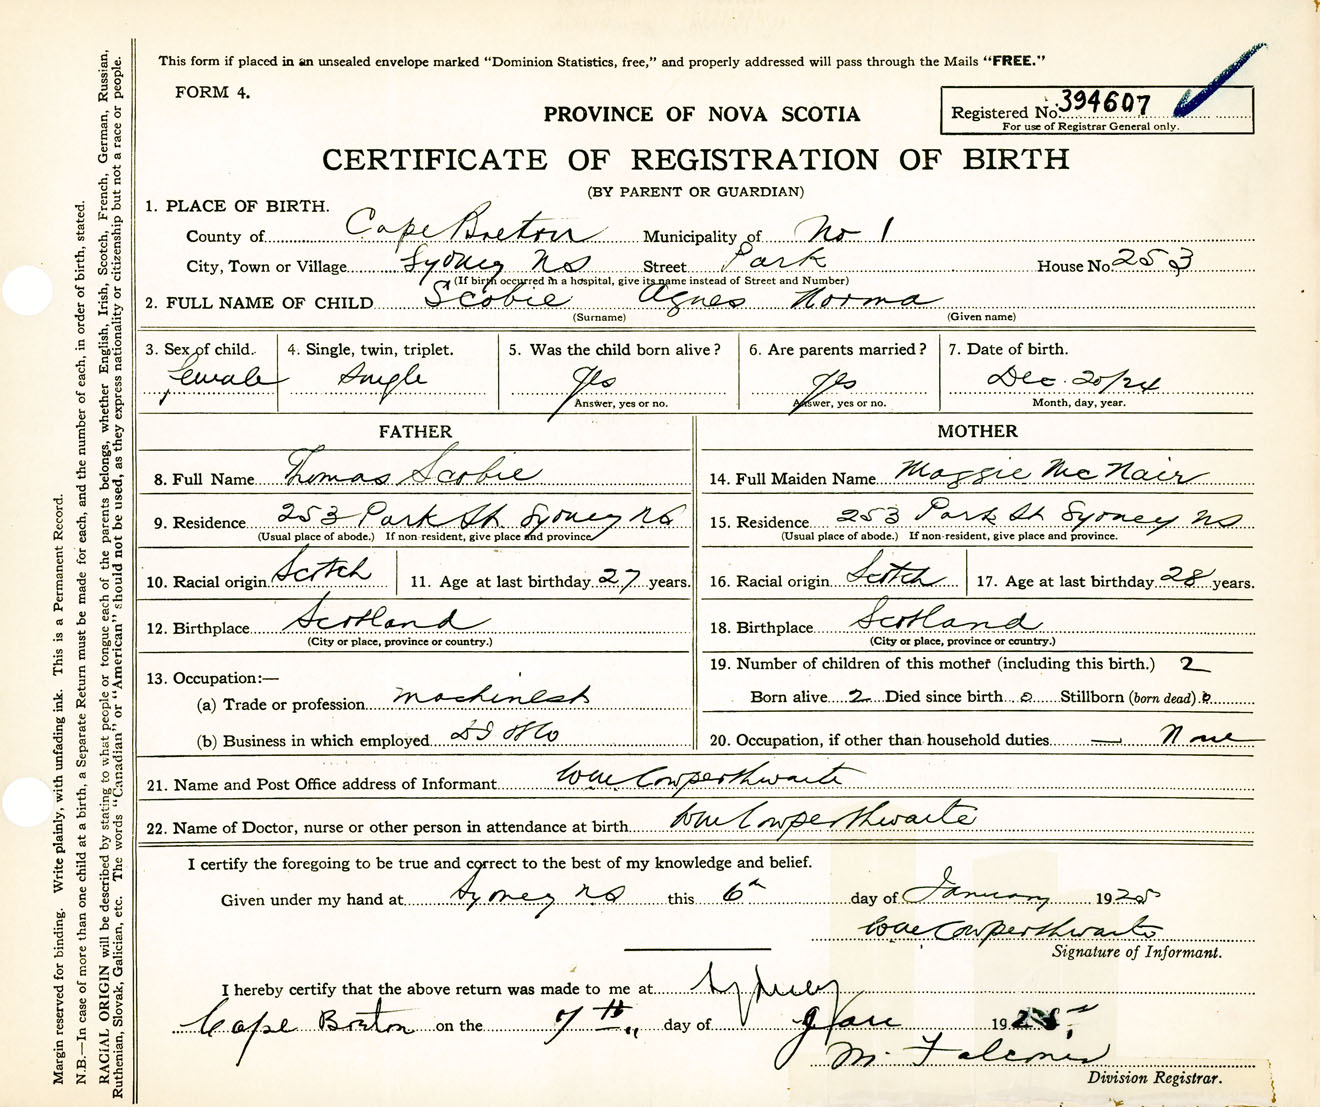 This form if placed in an unsealed envelope marked "Dominion Statistics, free," and properly addressed will pass through the Mails "FREE."
FORM 4.
PROVINCE OF NOVA SCOTIA
Registered No. 394607
For use of Registrar General only.
CERTIFICATE OF REGISTRATION OF BIRTH
(BY PARENT OR GUARDIAN)
1. PLACE OF BIRTH.
County of Cape Breton Municipality of No 1
City, Town or Village Sydney NS Street Park House No. 253
(If birth occurred in a hospital, give its name instead of Street and Number)
2. FULL NAME OF CHILD Scobie Agnes Norma
(Surname) (Given name)
3. Sex of child. 4. Single, twin, triplet. 5. Was the child born alive? 6. Are parents married? 7. Date of birth.
Female Single Yes Yes Dec. 20/24
Answer, yes or no. Answer, yes or no. Month, day, year.
FATHER MOTHER
8. Full Name Thomas Scobie 14. Full Maiden Name Maggie McNair
9. Residence 253 Park St. Sydney NS 15. Residence 253 Park St Sydney NS
(Usual place of abode.) If non-resident, give place and province (Usual place of abode.) If non-resident, give place and province.
10. Racial origin Scotch 11. Age at last birthday 27 years. 16. Racial origin Scotch 17. Age at last birthday 28 years.
12. Birthplace Scotland 18. Birthplace Scotland
(City or place, province or country.) (City or place, province or country.)
13. Occupation:— 19. Number of children of this mother (including this birth.) 2
(a) Trade or profession machinest Born alive 2 Died since birth 0 Stillborn (born dead) 0
(b) Business in which employed 20. Occupation, if other than household duties — None
21. Name and Post Office address of Informant Cowperthwaite
22. Name of Doctor, nurse or other person in attendance at birth Cowperthwaite
I certify the foregoing to be true and correct to the best of my knowledge and belief.
Given under my hand at Sydney NS this 6th day of January 1925
Cowperthwaite
Signature of Informant.
I hereby certify that the above return was made to me at Sydney
Cape Breton on the 7th day of Jan 1925
M. Falconer
Division Registrar.
Margin reserved for binding. Write plainly, with unfading ink. This is a Permanent Record.
N.B.—In case of more than one child at a birth, a Separate Return must be made for each, and the number of each, in order of birth, stated.
RACIAL ORIGIN will be described by stating to what people or tongue each of the parents belongs, whether English, Irish, Scotch, French, German, Russian,
Ruthenian, Slovak, Galician, etc. The words "Canadian" or "American" should not be used, as they express nationality or citizenship but not a race or people.